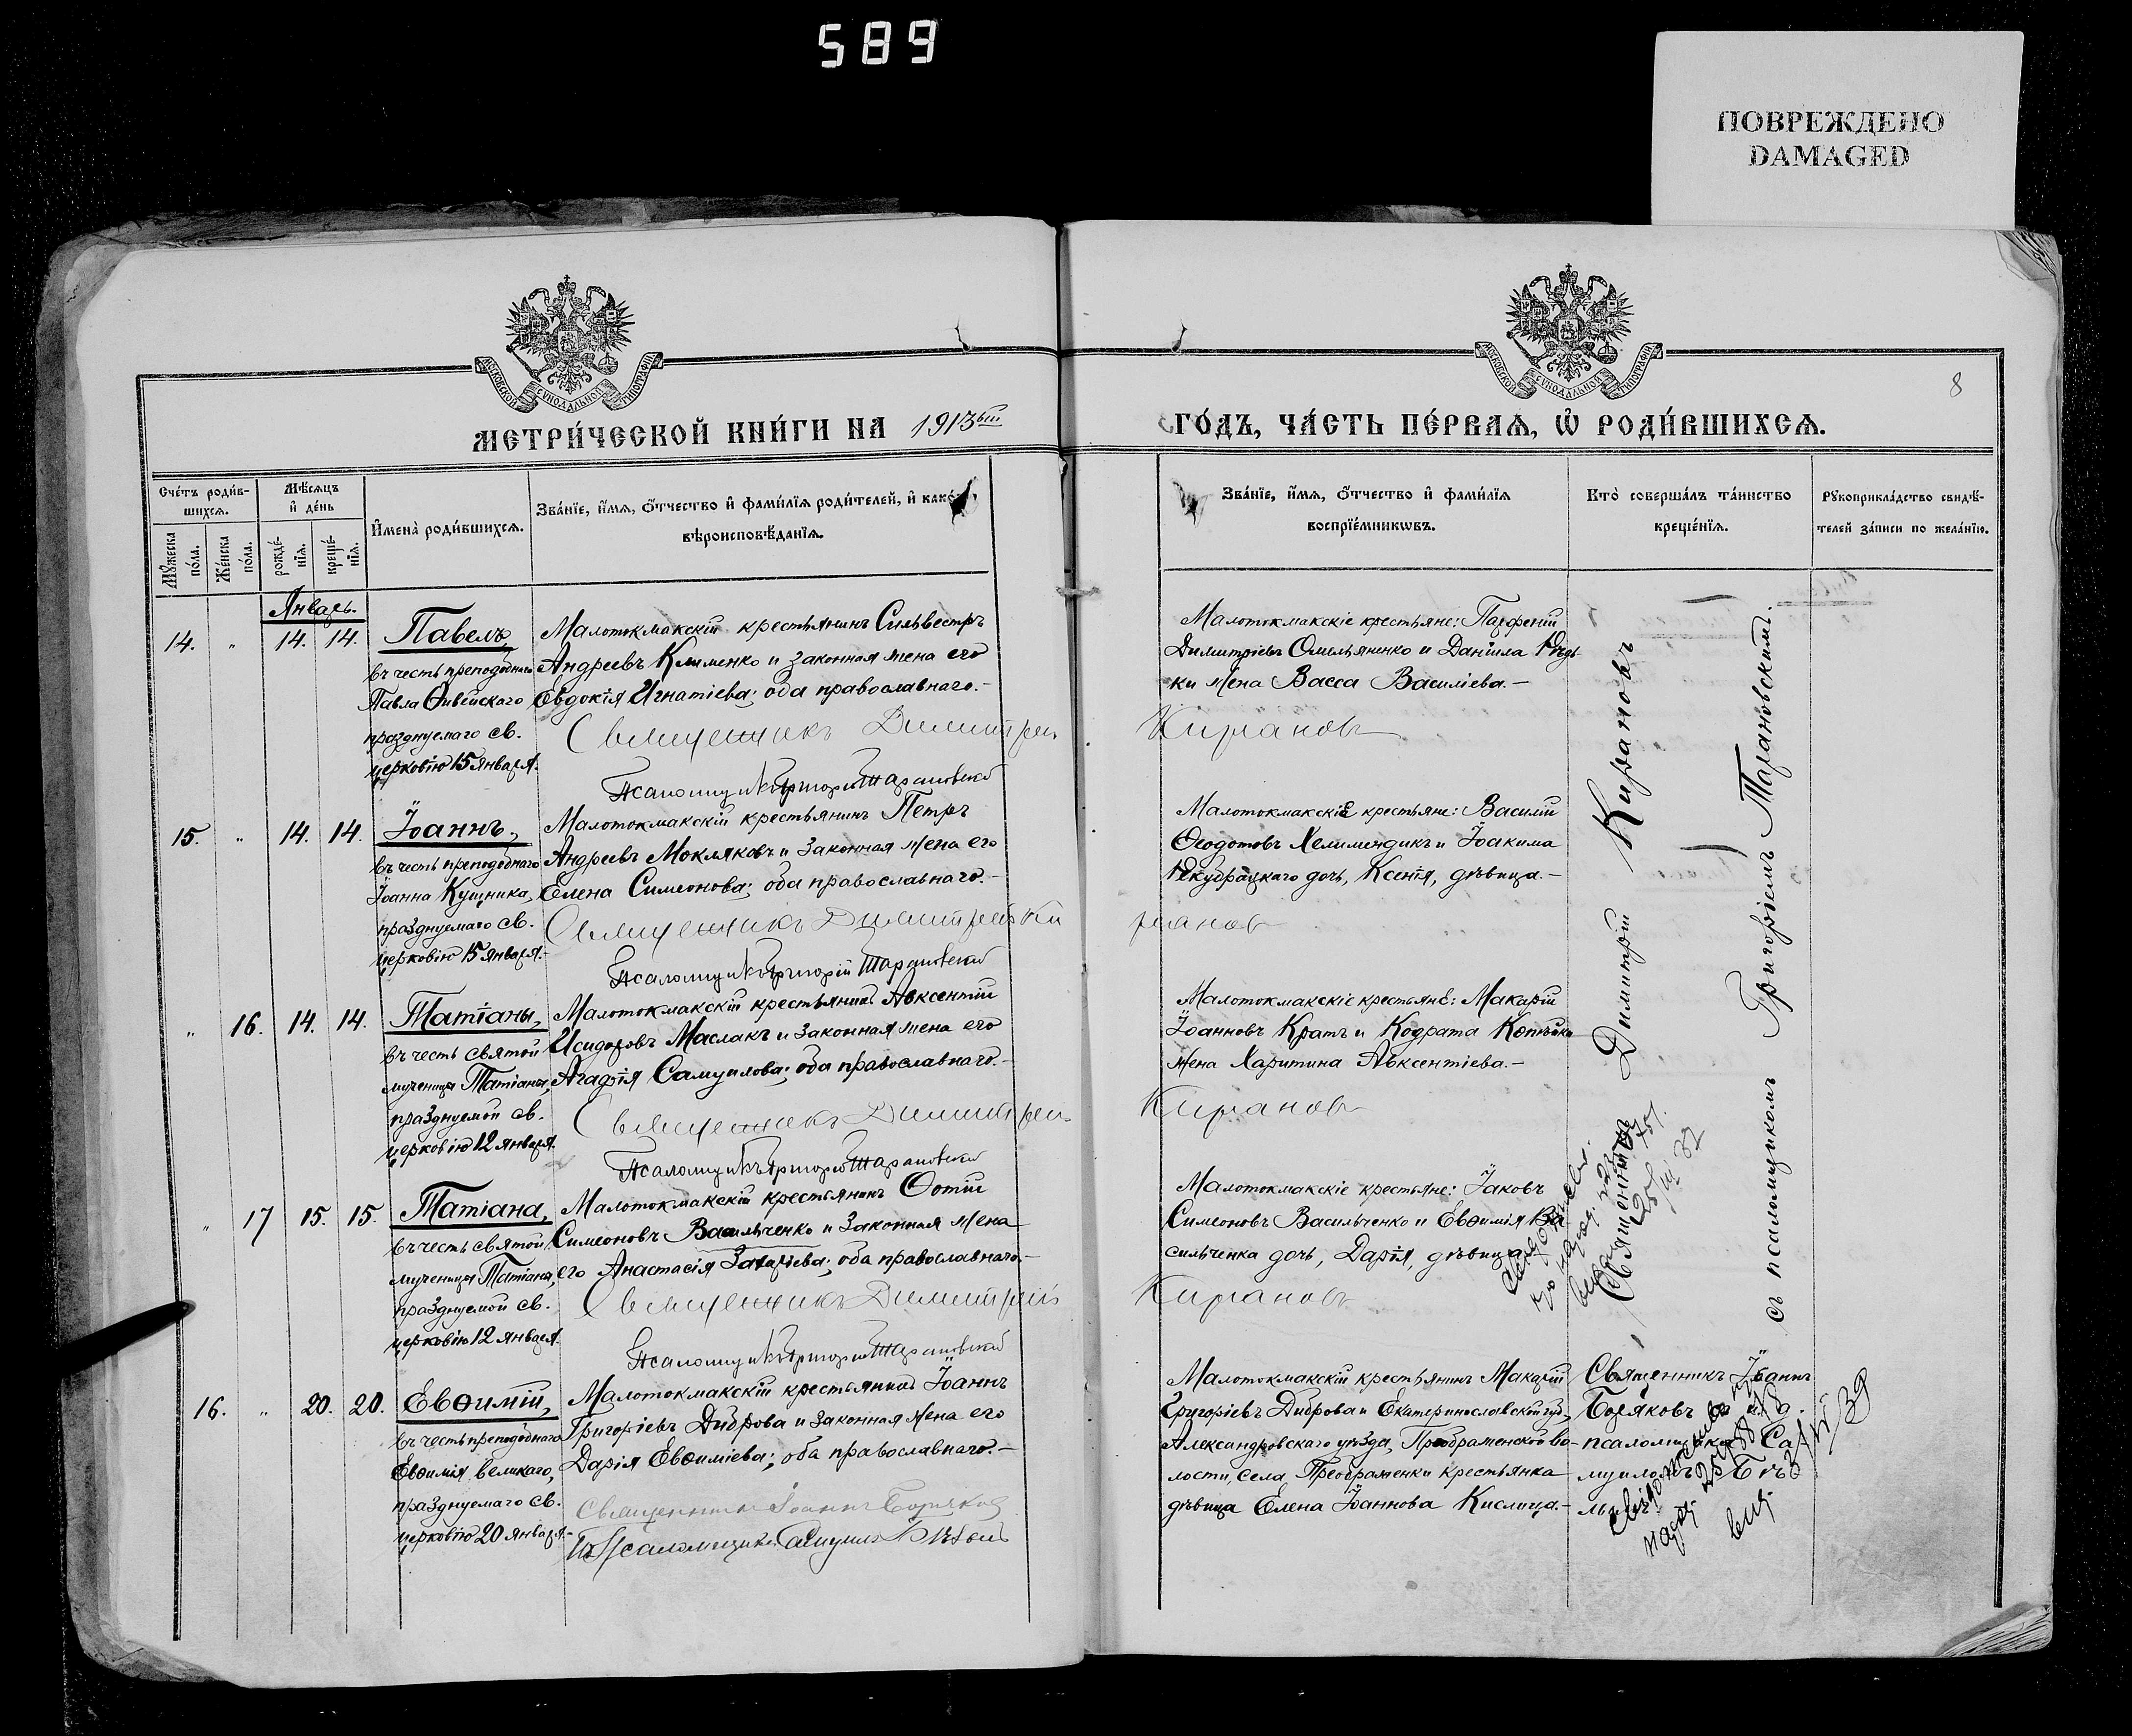 589
ПОВРЕЖДЕНО
DAMAGED
МОСКОВСКОЙ СѴНОДАЛЬНОЙ ТИПОГРАФІИ
МОСКОВСКОЙ СѴНОДАЛЬНОЙ ТИПОГРАФІИ
8
МЕТРИ́ЧЕСКОЙ КНИ́ГИ НА 1913ый
ГО́ДЪ, ЧА́СТЬ ПЕ́РВАѦ, Ѽ РОДИ́ВШИХСѦ.
Сче́тъ роди́в-
шихсѧ.
Мꙋ́жеска по́ла.
Же́нска по́ла.
Мѣ́сѧцъ
и҆ де́нь
рожде́-
нїѧ.
креще́-
нїѧ.
И҆мена̀ роди́вшихсѧ.
Зва́нїе, и҆́мѧ, ѻ҆́тчество и҆ фами́лїѧ роди́телей, и҆ како́
вѣроисповѣ́данїѧ.
Зва́нїе, и҆́мѧ, ѻ҆́тчество и҆ фами́лїѧ
воспрїе́мникѡвъ.
Кто̀ соверша́лъ та́инство
креще́нїѧ.
Рꙋкоприкла́дство свидѣ́-
телей за́писи по жела́нїю.
Январь.
14. „ 14. 14. Павелъ,
въ честь преподобнаго
Павла Ѳивейскаго
празднуемаго св.
церковію 15 января.
Малотокмакскій крестьянинъ Сильвестръ
Андреевъ Клименко и законная жена его
Евдокія Игнатіева; оба православнаго.-
Священникъ Димитрій Киранов
Псаломщикъ Григорій Тарановскій
Малотокмакскіе крестьяне: Парѳеній
Димитріевъ Омельяненко и Даніила
ки жена Васса Василіева.-
15. „ 14. 14. Іоаннъ,
въ честь преподобнаго
Іоанна Кущника,
празднуемаго св.
церковію 15 января.-
Малотокмакскій крестьянинъ Петръ
Андреевъ Мокляковъ и законная жена его
Елена Симеонова; оба православнаго.-
Священникъ Димитрій Киранов
Псаломщикъ Григорій Тарановскій
Малотокмакскіе крестьяне: Василій
Ѳеодотовъ Хелимендикъ и Іоакима
дочь, Ксенія, дѣвица.-
„ 16. 14. 14. Татіаны,
въ честь святой
мученицы Татіаны,
празднуемой св.
церковію 12 января.
Малотокмакскій крестьянинъ Авксентій
Исидоровъ Маслакъ и законная жена его
Агаѳія Самуилова; оба православнаго.-
Священникъ Димитрій Киранов
Псаломщикъ Григорій Тарановскій
Малотокмакскіе крестьяне: Макарій
Іоанновъ Кратъ и Кодрата
жена Харитина Авксентіева.-
„ 17 15. 15. Татіана,
въ честь святой
мученицы Татіаны,
празднуемой св.
церковію 12 января.
Малотокмакскій крестьянинъ Фотій
Симеоновъ Васильченко и законная жена
его Анастасія Захаріева; оба православнаго.-
Священникъ Димитрій Киранов
Псаломщикъ Григорій Тарановскій
Малотокмакскіе крестьяне: Іаковъ
Симеоновъ Васильченко и Евѳимія Ва-
сильченка дочь, Дарія, дѣвица.
Священникъ Димитрій Кирановъ
съ псаломщикомъ Григоріемъ Тарановскимъ.
16. „ 20. 20. Евѳимій,
въ честь преподобнаго
Евѳимія Великаго,
празднуемаго св.
церковію 20 января.-
Малотокмакскій крестьянинъ Іоаннъ
Григоріевъ Диброва и законная жена его
Дарія Евѳиміева; оба православнаго.-
Священникъ Іоаннъ Боряковъ
Псаломщикъ Самуилъ
Малотокмакскій крестьянинъ Макарій
Григоріевъ Диброва и Екатеринославской губ.,
Александровскаго уѣзда, Преображенской во-
лости, села Преображенки крестьянка
дѣвица Елена Іоаннова Кислица.-
Священникъ Іоаннъ
Боряковъ
псаломщика Са
муиломъ